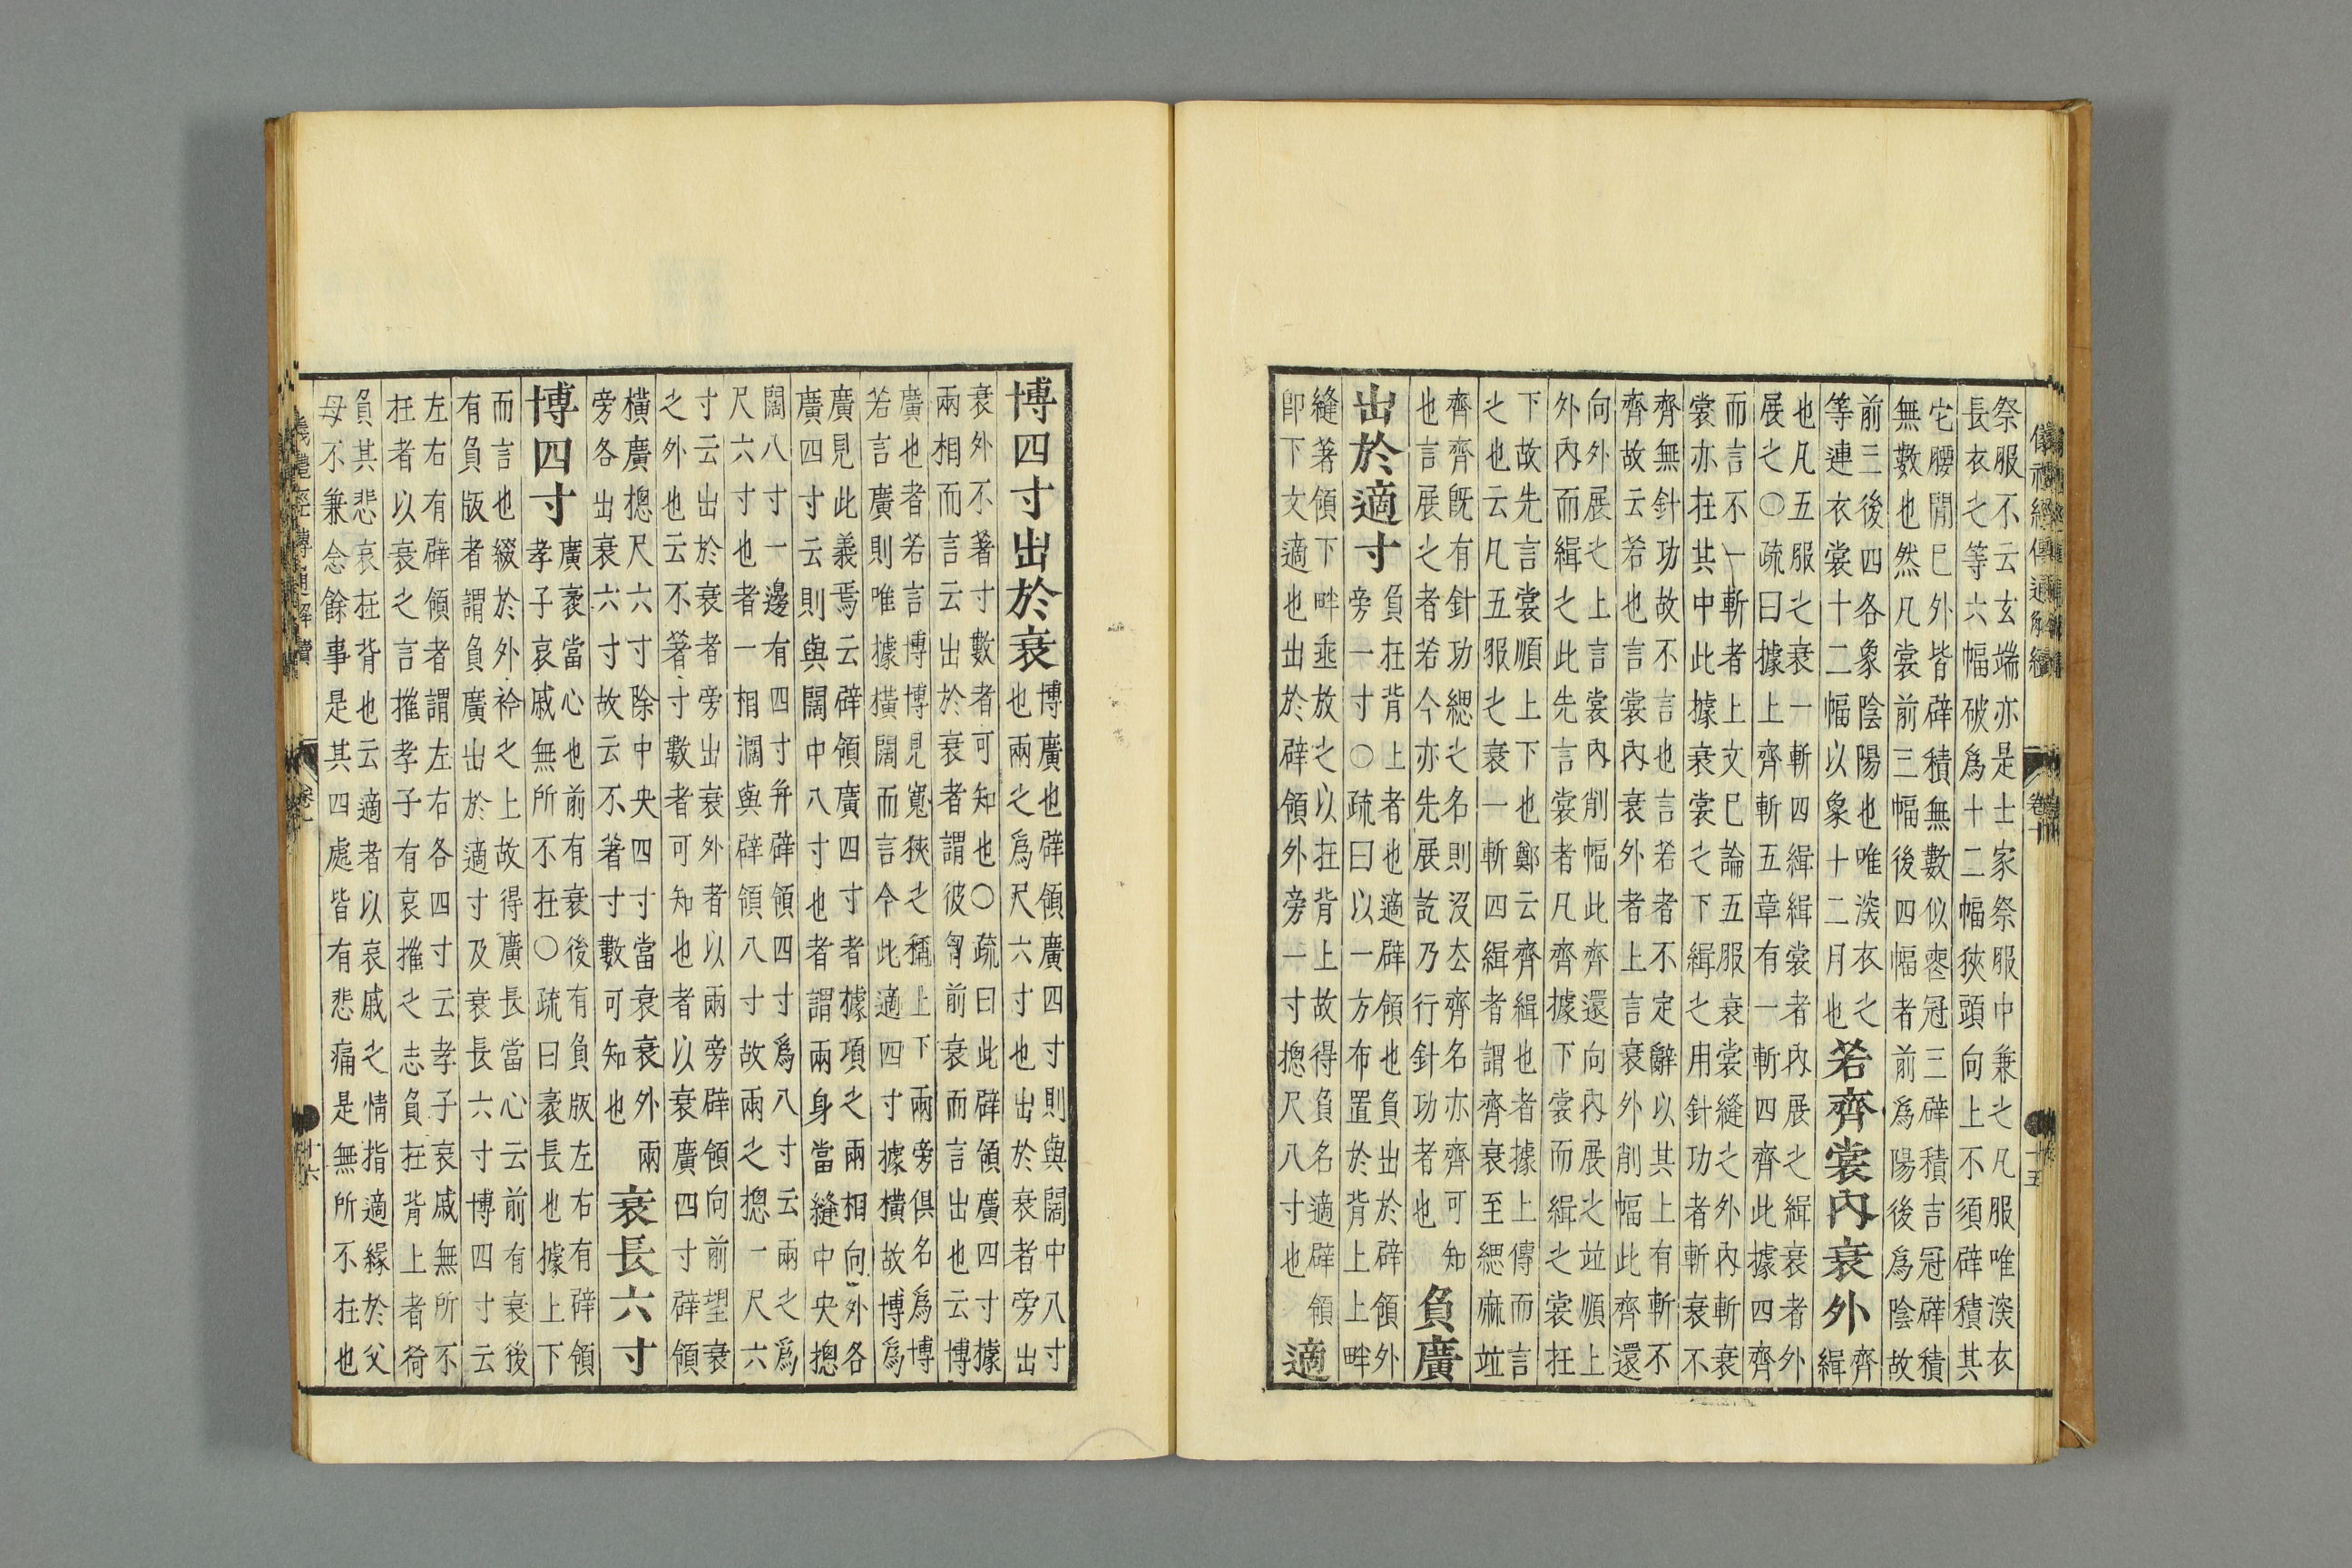 儀禮經傳通解續 卷十 十五
祭服不云玄端亦是士家祭服中兼之凡服唯深衣
長衣之等六幅破爲十二幅狹頭向上不須辟積其
它腰閒已外皆辟積無數似喪冠三辟積吉冠辟積
無數也然凡裳前三幅後四幅者前爲陽後爲陰故
前三後四各象陰陽也唯深衣之
等連衣裳十二幅以象十二月也
若齊裳內衰外
齊
緝
也凡五服之衰一斬四緝緝裳者內展之緝衰者外
展之〇疏曰據上齊斬五章有一斬四齊此據四齊
而言不一斬者上文已論五服衰裳縫之外內斬衰
裳亦在其中此據衰裳之下緝之用針功者斬衰不
齊無針功故不言也言若者不定辭以其上有斬不
齊故云若也言裳內衰外者上言衰外削幅此齊還
向外展之上言裳內削幅此齊還向內展之並順上
外內而緝之此先言裳者凡齊據下裳而緝之裳在
下故先言裳順上下也鄭云齊緝也者據上傳而言
之也云凡五服之衰一斬四緝者謂齊衰至緦麻並
齊齊旣有針功緦之名則沒去齊名亦齊可知
也言展之者若今亦先展訖乃行針功者也
負廣
出於適寸
負在背上者也適辟領也負出於辟領外
旁一寸〇疏曰以一方布置於背上上畔
縫著領下畔垂放之以在背上故得負名適辟領
卽下文適也出於辟領外旁一寸摠尺八寸也
適
博四寸出於衰
博廣也辟領廣四寸則與闊中八寸
也兩之爲尺六寸也出於衰者旁出
衰外不著寸數者可知也〇疏曰此辟領廣四寸據
兩相而言云出於衰者謂彼胷前衰而言出也云博
廣也者若言博博見寬狹之稱上下兩旁俱名爲博
若言廣則唯據橫闊而言今此適四寸據橫故博爲
廣見此義焉云辟領廣四寸者據項之兩相向外各
廣四寸云則與闊中八寸也者謂兩身當縫中央摠
闊八寸一邊有四寸幷辟領四寸爲八寸云兩之爲
尺六寸也者一相濶與辟領八寸故兩之摠一尺六
寸云出於衰者旁出衰外者以兩旁辟領向前望衰
之外也云不著寸數者可知也者以衰廣四寸辟領
橫廣摠尺六寸除中央四寸當衰衰外兩
旁各出衰六寸故云不著寸數可知也
衰長六寸
博四寸
廣袤當心也前有衰後有負版左右有辟領
孝子哀戚無所不在〇疏曰袤長也據上下
而言也綴於外衿之上故得廣長當心云前有衰後
有負版者謂負廣出於適寸及衰長六寸博四寸云
左右有辟領者謂左右各四寸云孝子哀戚無所不
在者以衰之言摧孝子有哀摧之志負在背上者荷
負其悲哀在背也云適者以哀戚之情指適緣於父
母不兼念餘事是其四處皆有悲痛是無所不在也
儀禮經傳通解續 卷十 十六